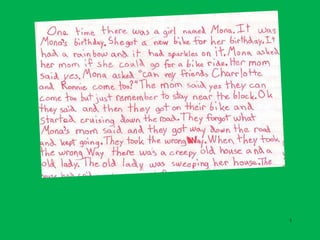 One time there was a girl named Mona. It was
Mona's birthday. She got a new bike for her birthday. It
had a rainbow and it had sparkles on it. Mona asked
her mom if she could go for a bike ride. Her mom
said yes. Mona asked "can my friends Charrlotte
and Ronnie come too?" The mom said yes they can
come too but just remember to stay near the block. Ok
they said and then they got on their bike and
started cruising down the road. They forgot what
Mona's mom said and they got way down the road
and kept going. They took the wrong Way. When they took
the wrong Way there was a creepy old house and a
old lady. The old lady was sweeping her house. The